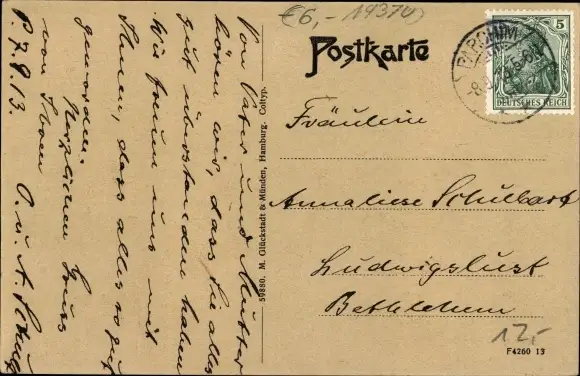 P. 7.9.13.
Von Vater und Mutter
hören wir, dass Sie alles
gut überstanden haben
Wir freuen uns mit
Ihnen, dass alles so gut
geworden.
Herzlichen Gruss
von Ihren O. u. A.
59880. M. Glückstadt & Münden, Hamburg. Coltyp.
€6,- 19370
Postkarte
PARCHIM
5
DEUTSCHES REICH
Fräulein
Annaliese Schulbart
Ludwigslust
Bethlehem
12,-
F4260 13